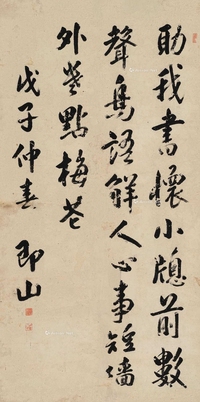 助我書懷小牕前數
聲鳥語解人心事短墻
外營點梅苍
戊子仲春 即山